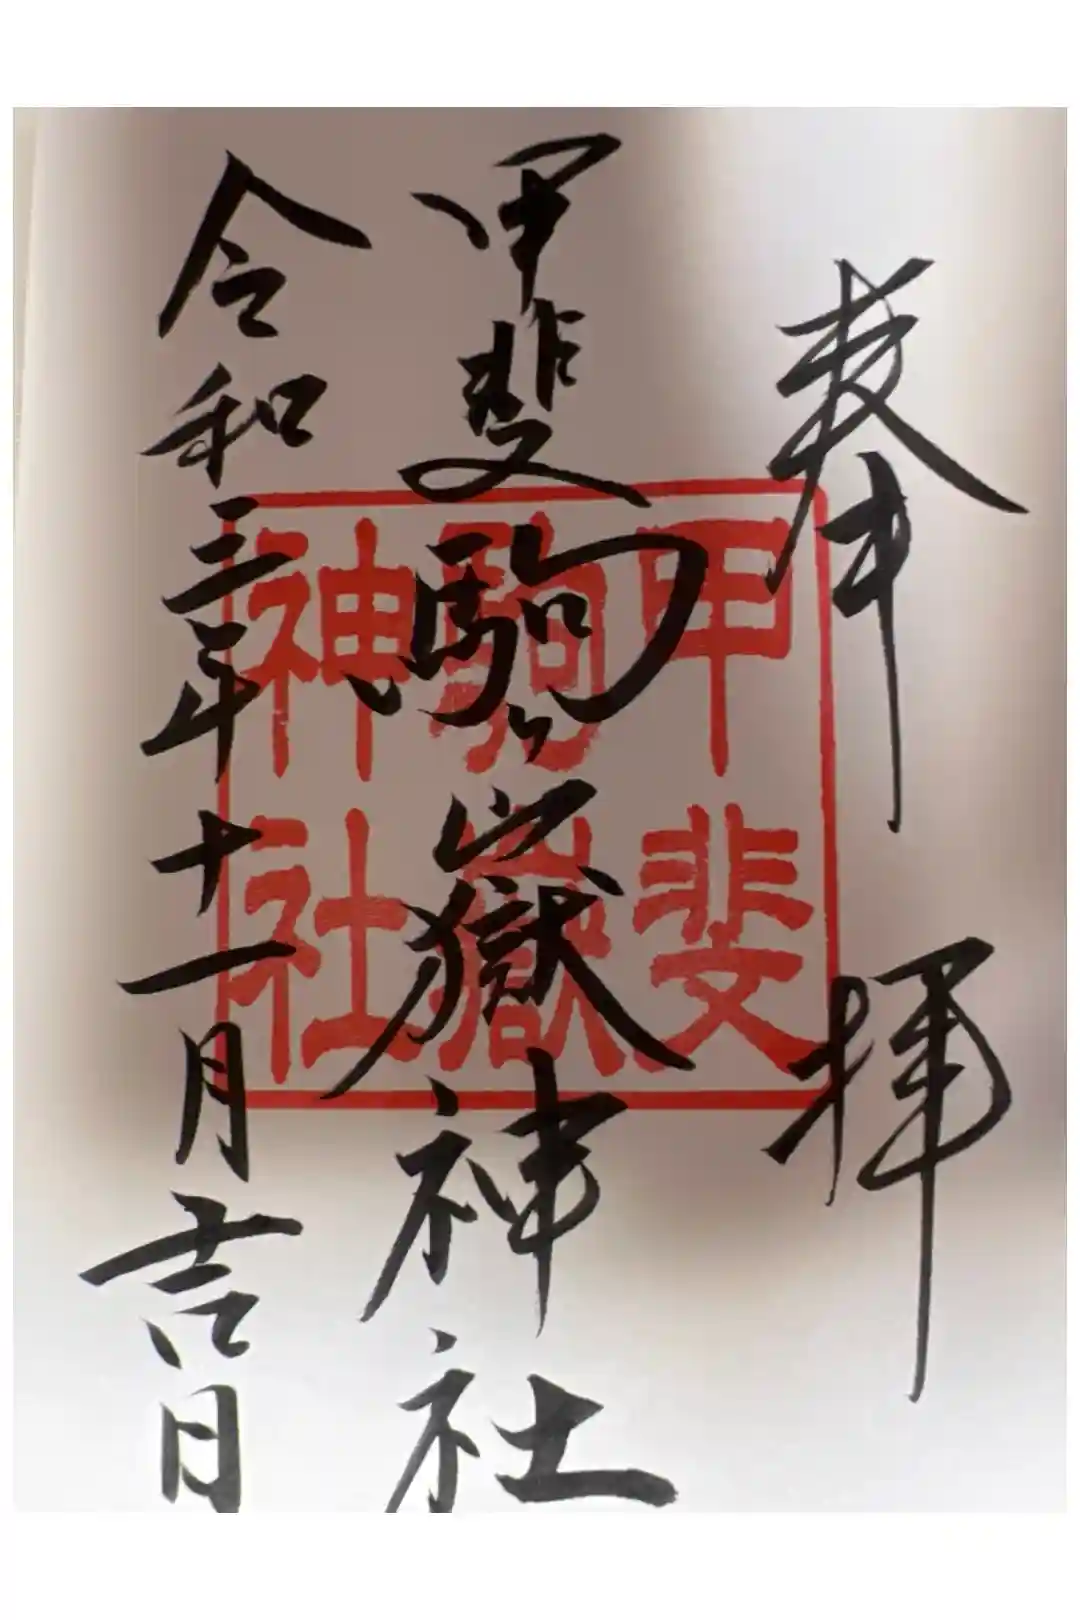 奉拝
甲斐駒ヶ嶽神社
令和三年十一月吉日
甲斐
駒嶽
神社